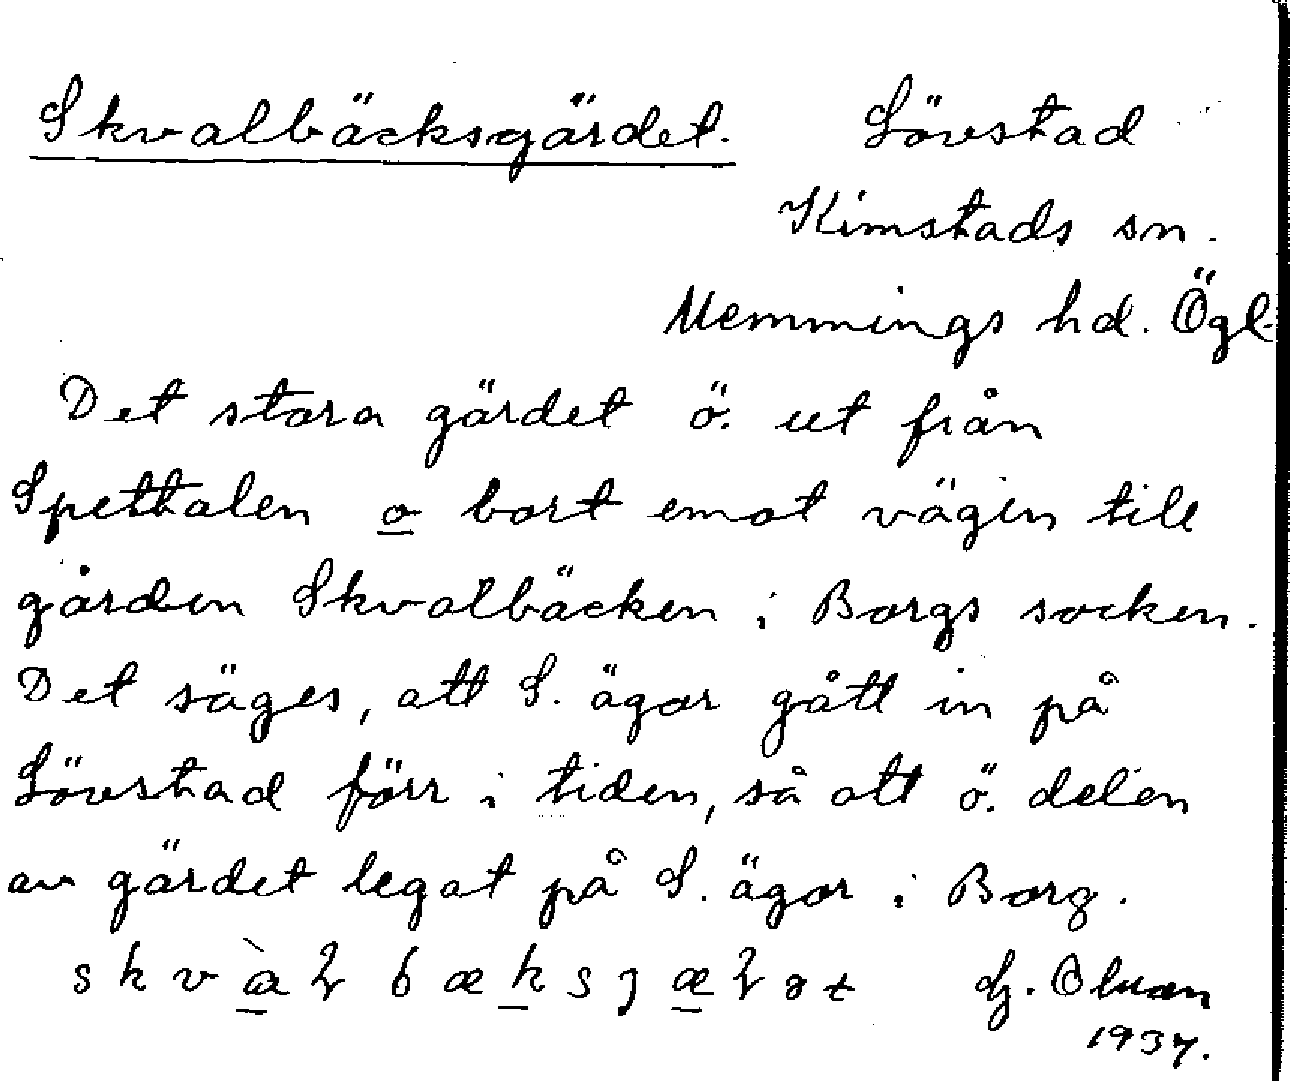 Skvalbäcksgärdet. Lövstad
Kimstads sn.
Memmings hd. Ögl.
Det stora gärdet ö. ut från
Spettalen o bort emot vägen till
gården Skvalbäcken i Borgs socken.
Det säges, att S. ägor gått in på
Lövstad förr i tiden, så att ö. delen
av gärdet legat på S. ägor i Borg.
1937.